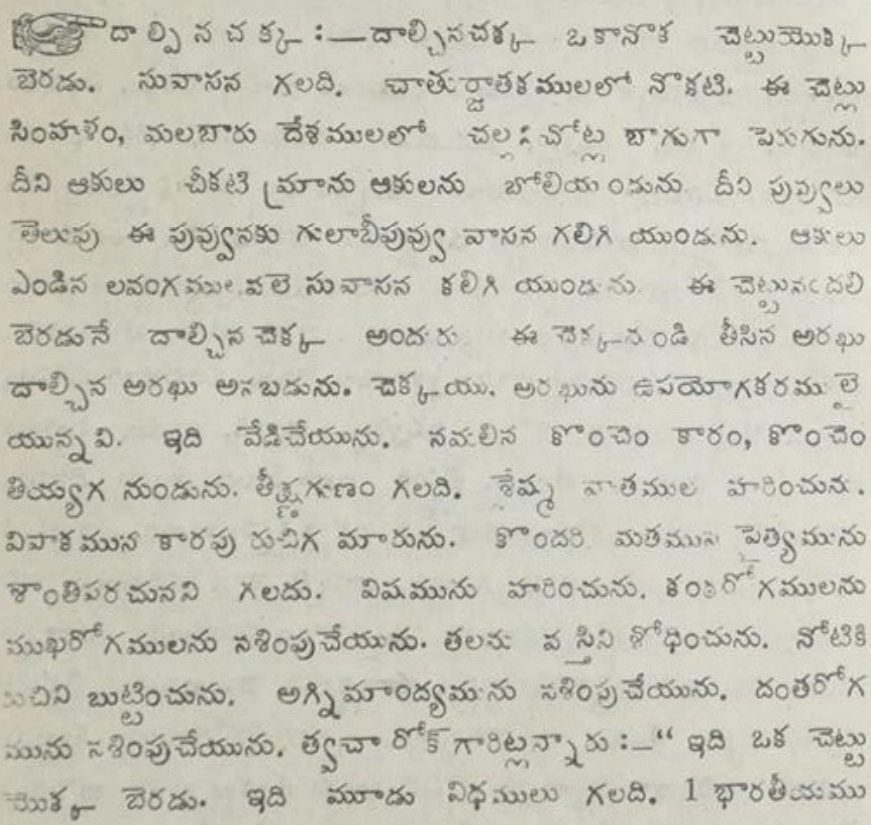 దాల్చిన చక్క :—దాల్చినచక్క ఒకానొక చెట్టుయొక్క
బెరడు. సువాసన గలది. చాతుర్జాతకములలో నొకటి. ఈ చెట్లు
సింహళం, మలబారు దేశములలో చల్లని చోట్ల బాగుగా పెరుగును.
దీని ఆకులు చీకటి మ్రాను ఆకులను బోలియుండును. దీని పువ్వులు
తెలుపు ఈ పువ్వునకు గులాబీపువ్వు వాసన గలిగి యుండును. ఆకులు
ఎండిన లవంగములవలె సువాసన కలిగి యుండును. ఈ చెట్టునందలి
బెరడునే దాల్చిన చెక్క అందురు ఈ చెక్కనుండి తీసిన అరఖు
దాల్చిన అరఖు అనబడును. చెక్కయు, అరఖును ఉపయోగకరములై
యున్నవి. ఇది వేడిచేయును. నమలిన కొంచెం కారం, కొంచెం
తియ్యగ నుండును. తీక్ష్ణగుణం గలది. శ్లేష్మ వాతముల హరించును.
విపాకమున కారపు రుచిగ మారును. కొందరి మతమున పైత్యమును
శాంతిపరచునని గలదు. విషమును హరించును. కంఠరోగములను
ముఖరోగములను నశింపుచేయును. తలను వస్తిని శోధించును. నోటికి
రుచిని బుట్టించును. అగ్నిమాంద్యమును నశింపుచేయును. దంతరోగ
మును నశింపుచేయును. త్వచా రోక్ గారిట్లన్నారు :—“ ఇది ఒక చెట్టు
యొక్క బెరడు. ఇది మూడు విధములు గలది. 1 భారతీయము